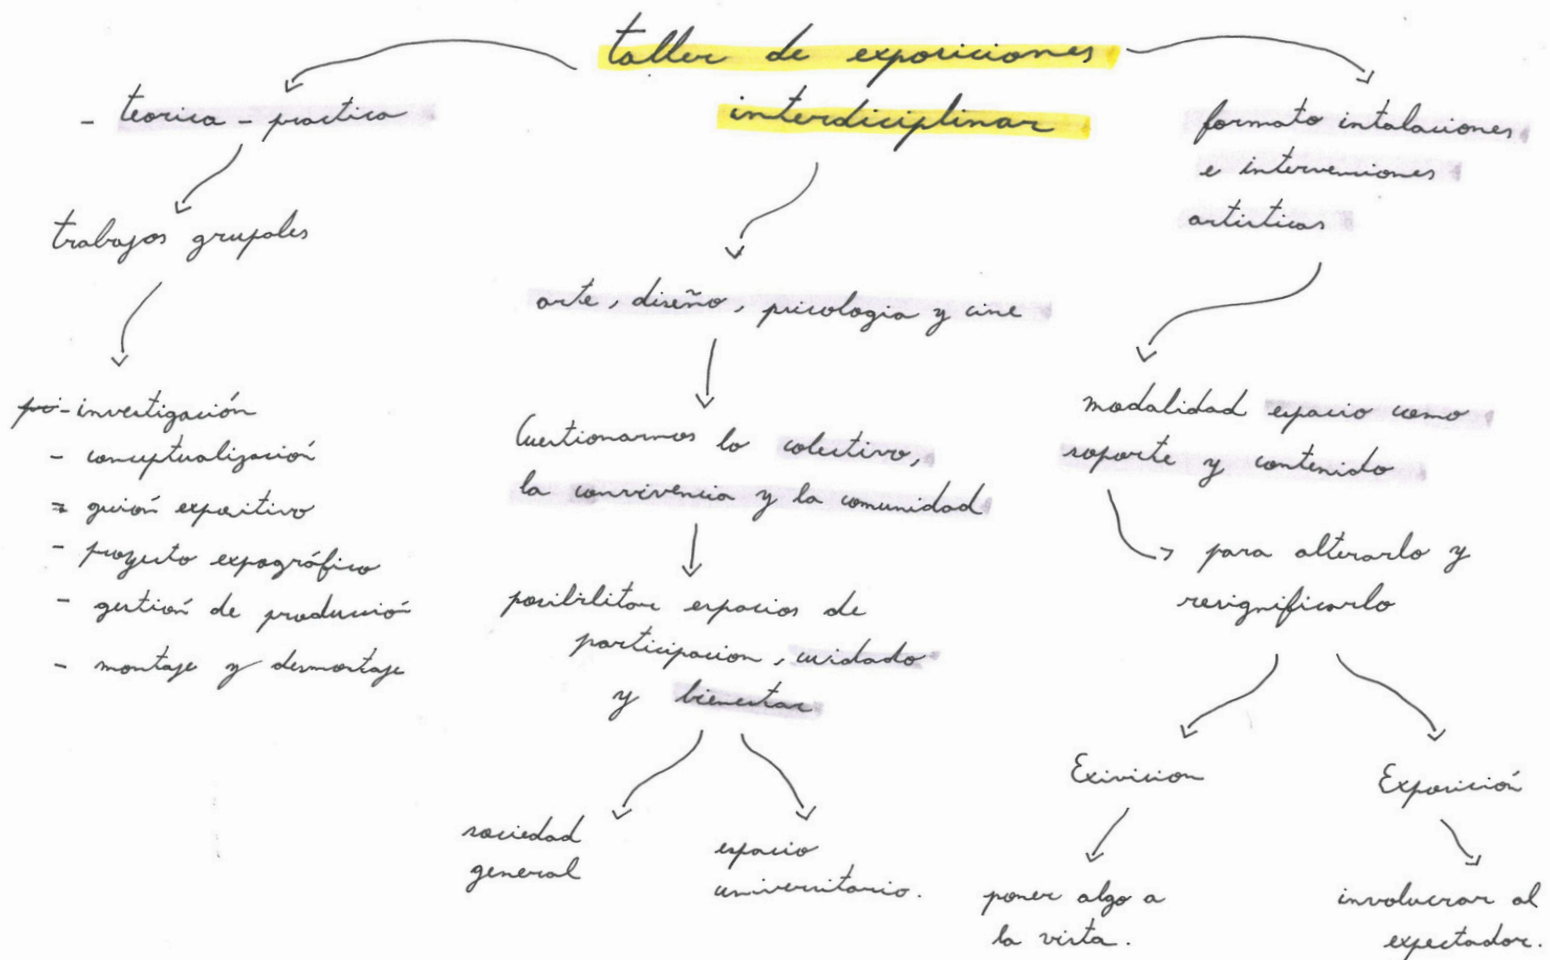 taller de exposiciones
interdiciplinar
- teorica - practica
trabajos grupales
- investigación
- conceptualización
- guión expositivo
- proyecto expográfico
- gestión de producción
- montaje y desmontaje
arte, diseño, psicologia y cine
Cuestionarnos lo colectivo,
la convivencia y la comunidad
posibilitar espacios de
participacion, cuidado
y bienestar
sociedad
general
espacio
universitario.
formato intalaciones
e intervenciones
artisticas
modalidad espacio como
soporte y contenido
para alterarlo y
resignificarlo
Exivicion
poner algo a
la vista.
Exposición
involucrar al
expectador.